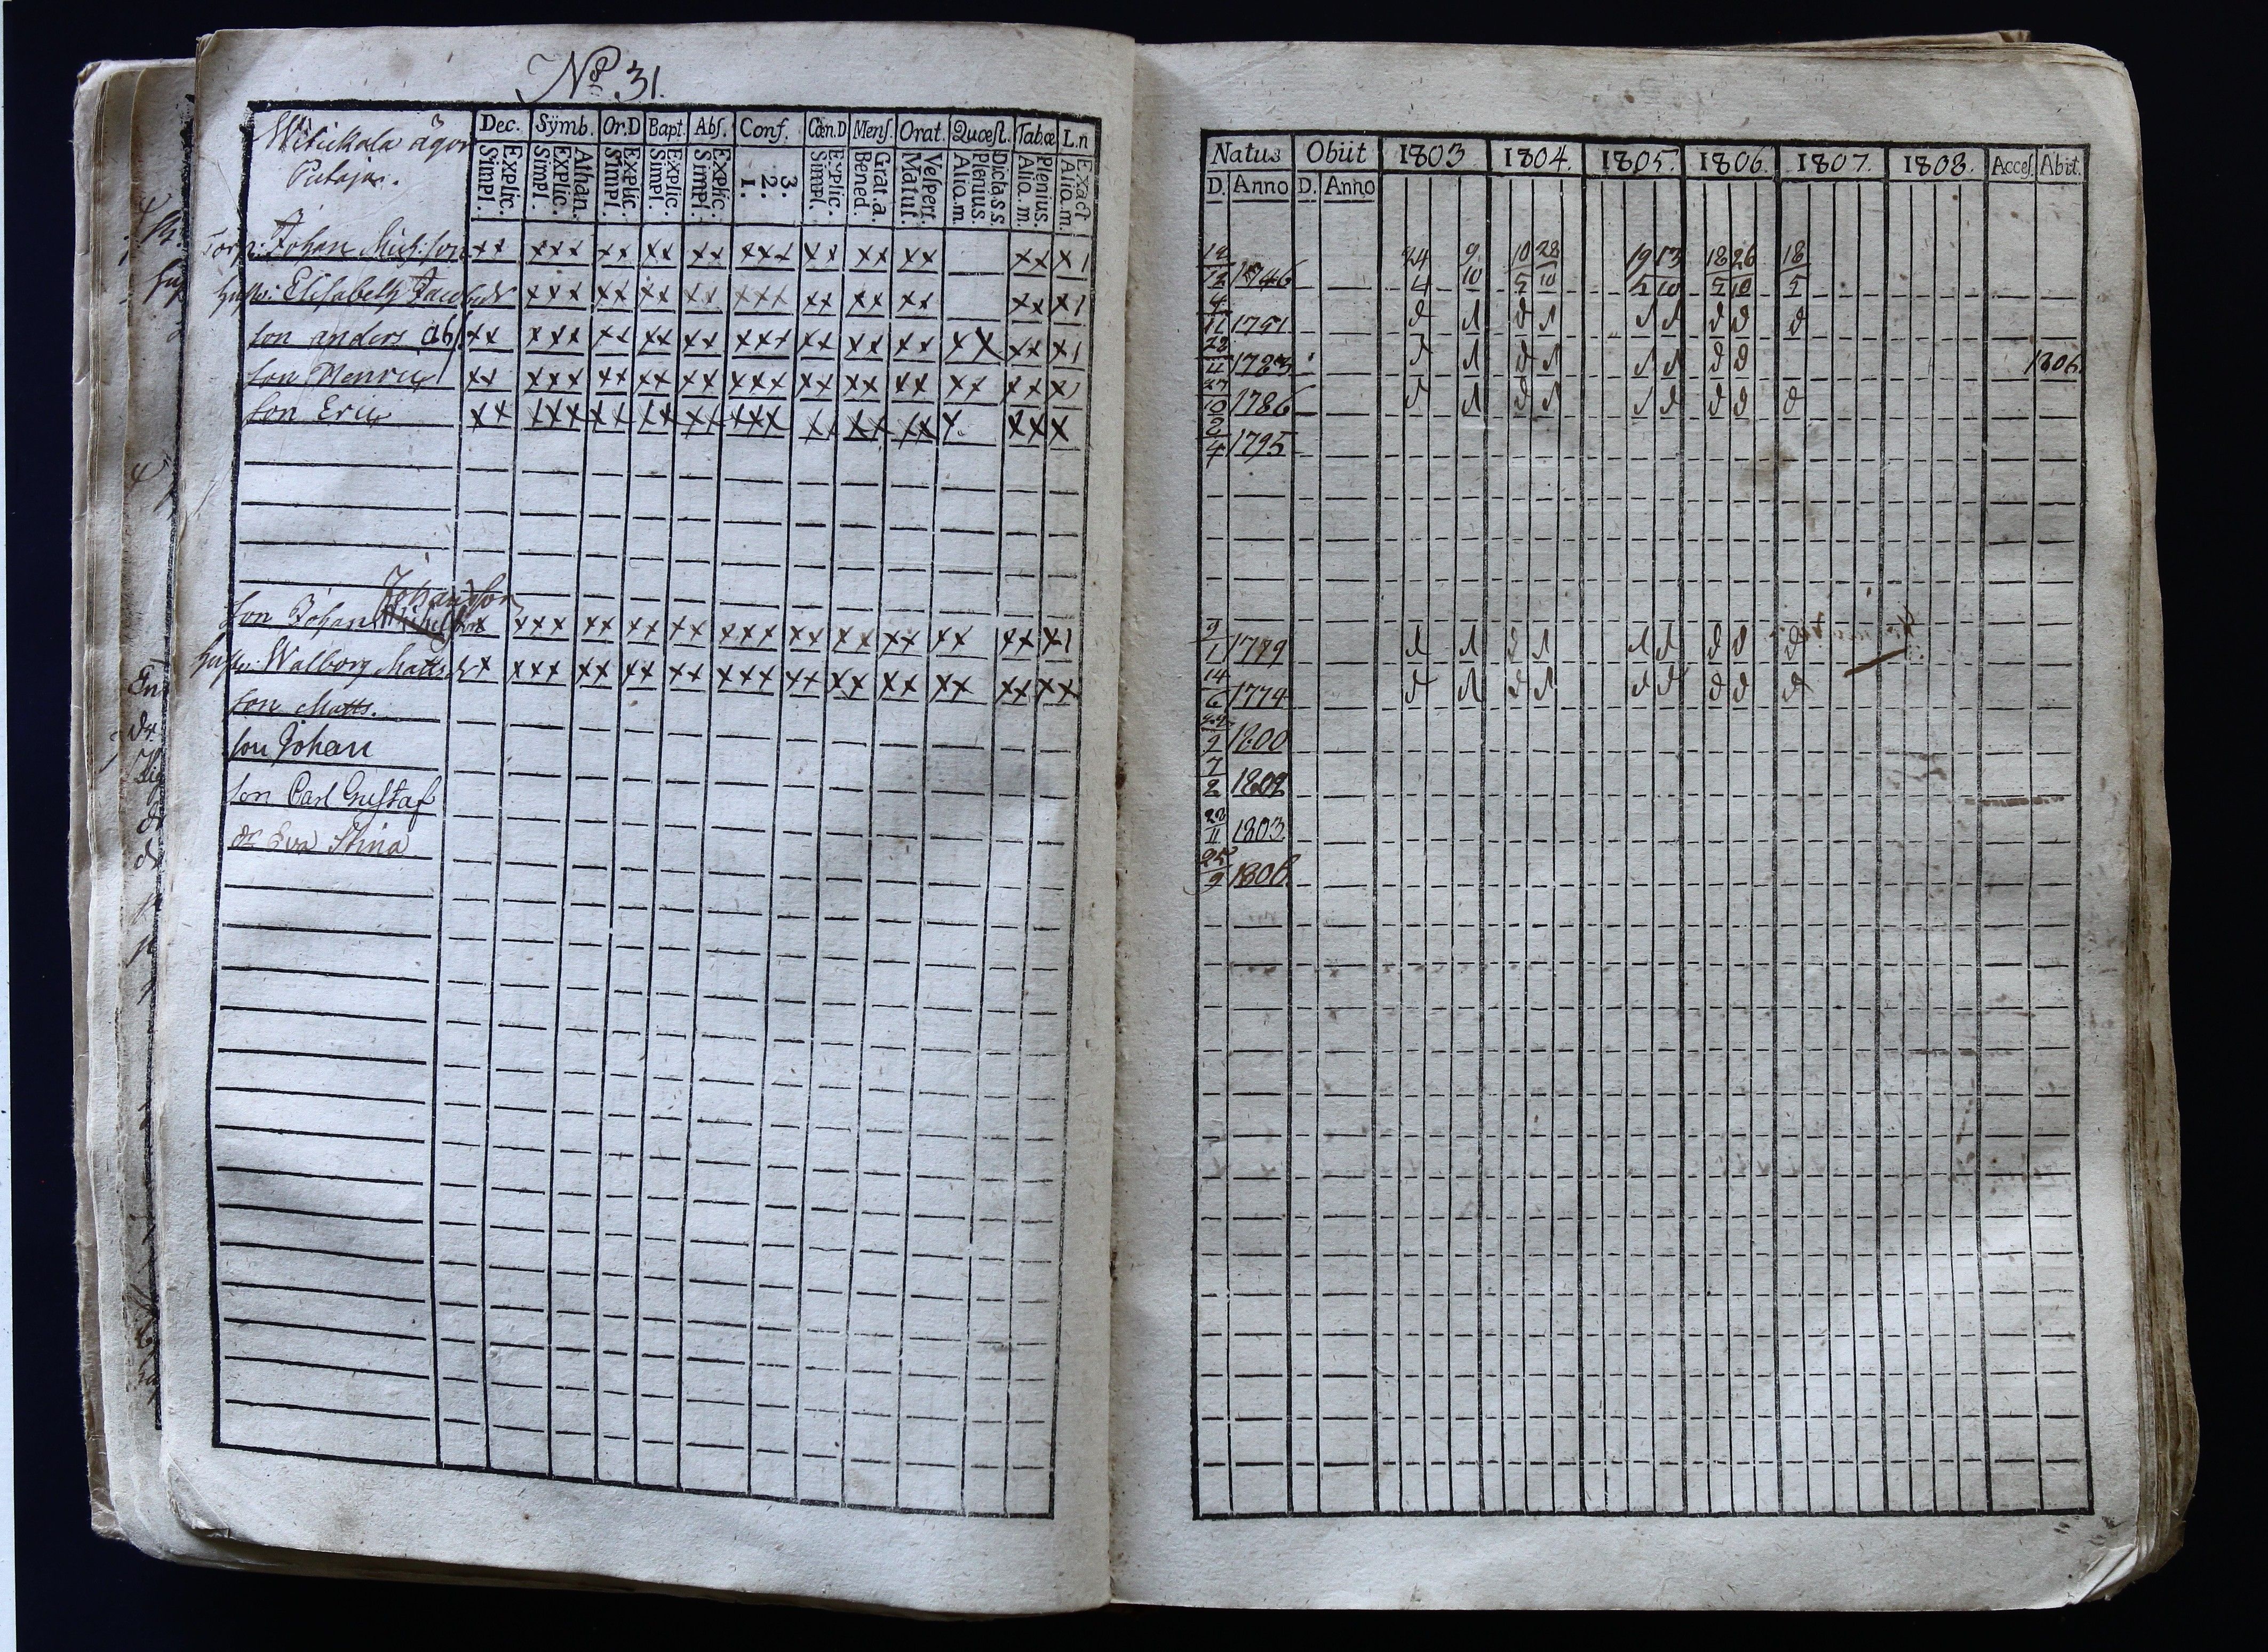 No 31.
Witickala ägor
Putaja.
Dec. Sÿmb. Or.D Bapt. Abſ. Conf. Cœn.D Menſ. Orat. Quœſt. Tabœ L.n
Explic. Simpl. Athan. Explic. Simpl. Explic. Simpl. Explic. Simpl. Explic. Simpl. 3. 2. 1. Explic. Simpl. Grat.a. Bened. Veſpert. Matut. Dict.a.s.s. Plenius. Aliq.m. Plenius. Aliq.m. Exact Aliq.m.
Torp: Johan Mich:son xx xxx xx xx xx xxx xx xx xx xx x1
Hust: Elisabeth Jacobsdr xxx xx xx xx xxx xx xx xx xx x1
son anders abf xx xxx xx xx xx xxx xx xx xx xx xx x1
son Henric xx xxx xx xx xx xxx xx xx xx xx xx x1
son Eric xx xxx xx xx xx xxx xx xx xx x xx x
Johansson
son Johan Michelsson x xxx xx xx xx xxx xx xx xx xx xx x1
hust: Walborg Matts xx xxx xx xx xx xxx xx xx xx xx xx xx
son Matts.
son Johan
son Carl Gustaf
dr Eva Stina
Natus Obiit 1803 1804. 1805. 1806. 1807. 1808. Acceſ. Abiit.
D. Anno D. Anno
12/12 1746 24/4 9/10 10/5 28/10 19/5 13/10 18/5 26/10 18/5
4/11 1751
22/11 1783 1806.
27/10 1786
2/4 1795
9/1 1779
14/6 1774
22/9 1800
7/2 1802
22/11 1803.
25/9 1806.